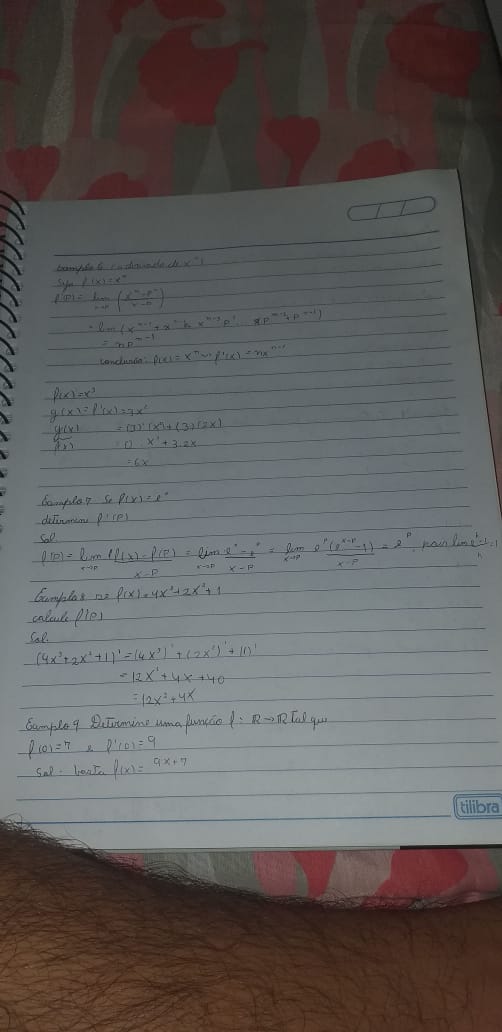 Exemplo 6 a derivada de xⁿ
Seja f(x)=xⁿ
f'(P)= lim x→P (xⁿ-Pⁿ / x-P)
= lim (xⁿ⁻¹+
= nPⁿ⁻¹
conclusão: f(x)=xⁿ f'(x)=nxⁿ⁻¹
f(x)=x³
g(x)=f'(x)=3x²
g'(x) =(3)'(x²)+(3)(2x)
=0. x²+3.2x
=6x
Exemplo 7 Se f(x)=eˣ
determine f'(P)
Sol.
f'(P)= lim x→P f(x)-f(P) / x-P = lim x→P eˣ-eᵖ / x-P = lim x→P eᵖ(eˣ⁻ᵖ-1) / x-P = eᵖ, pois lim eʰ-1 / h =1
Exemplo 8 Se f(x)=4x³+2x²+1
calcule f'(P)
Sol.
(4x³+2x²+1)'=(4x³)'+(2x²)'+(1)'
=12x²+4x+0
=12x²+4x
Exemplo 9 Determine uma função f: R→R tal que
f(0)=7 e f'(0)=9
Sol. basta f(x)= 9x+7
tilibra